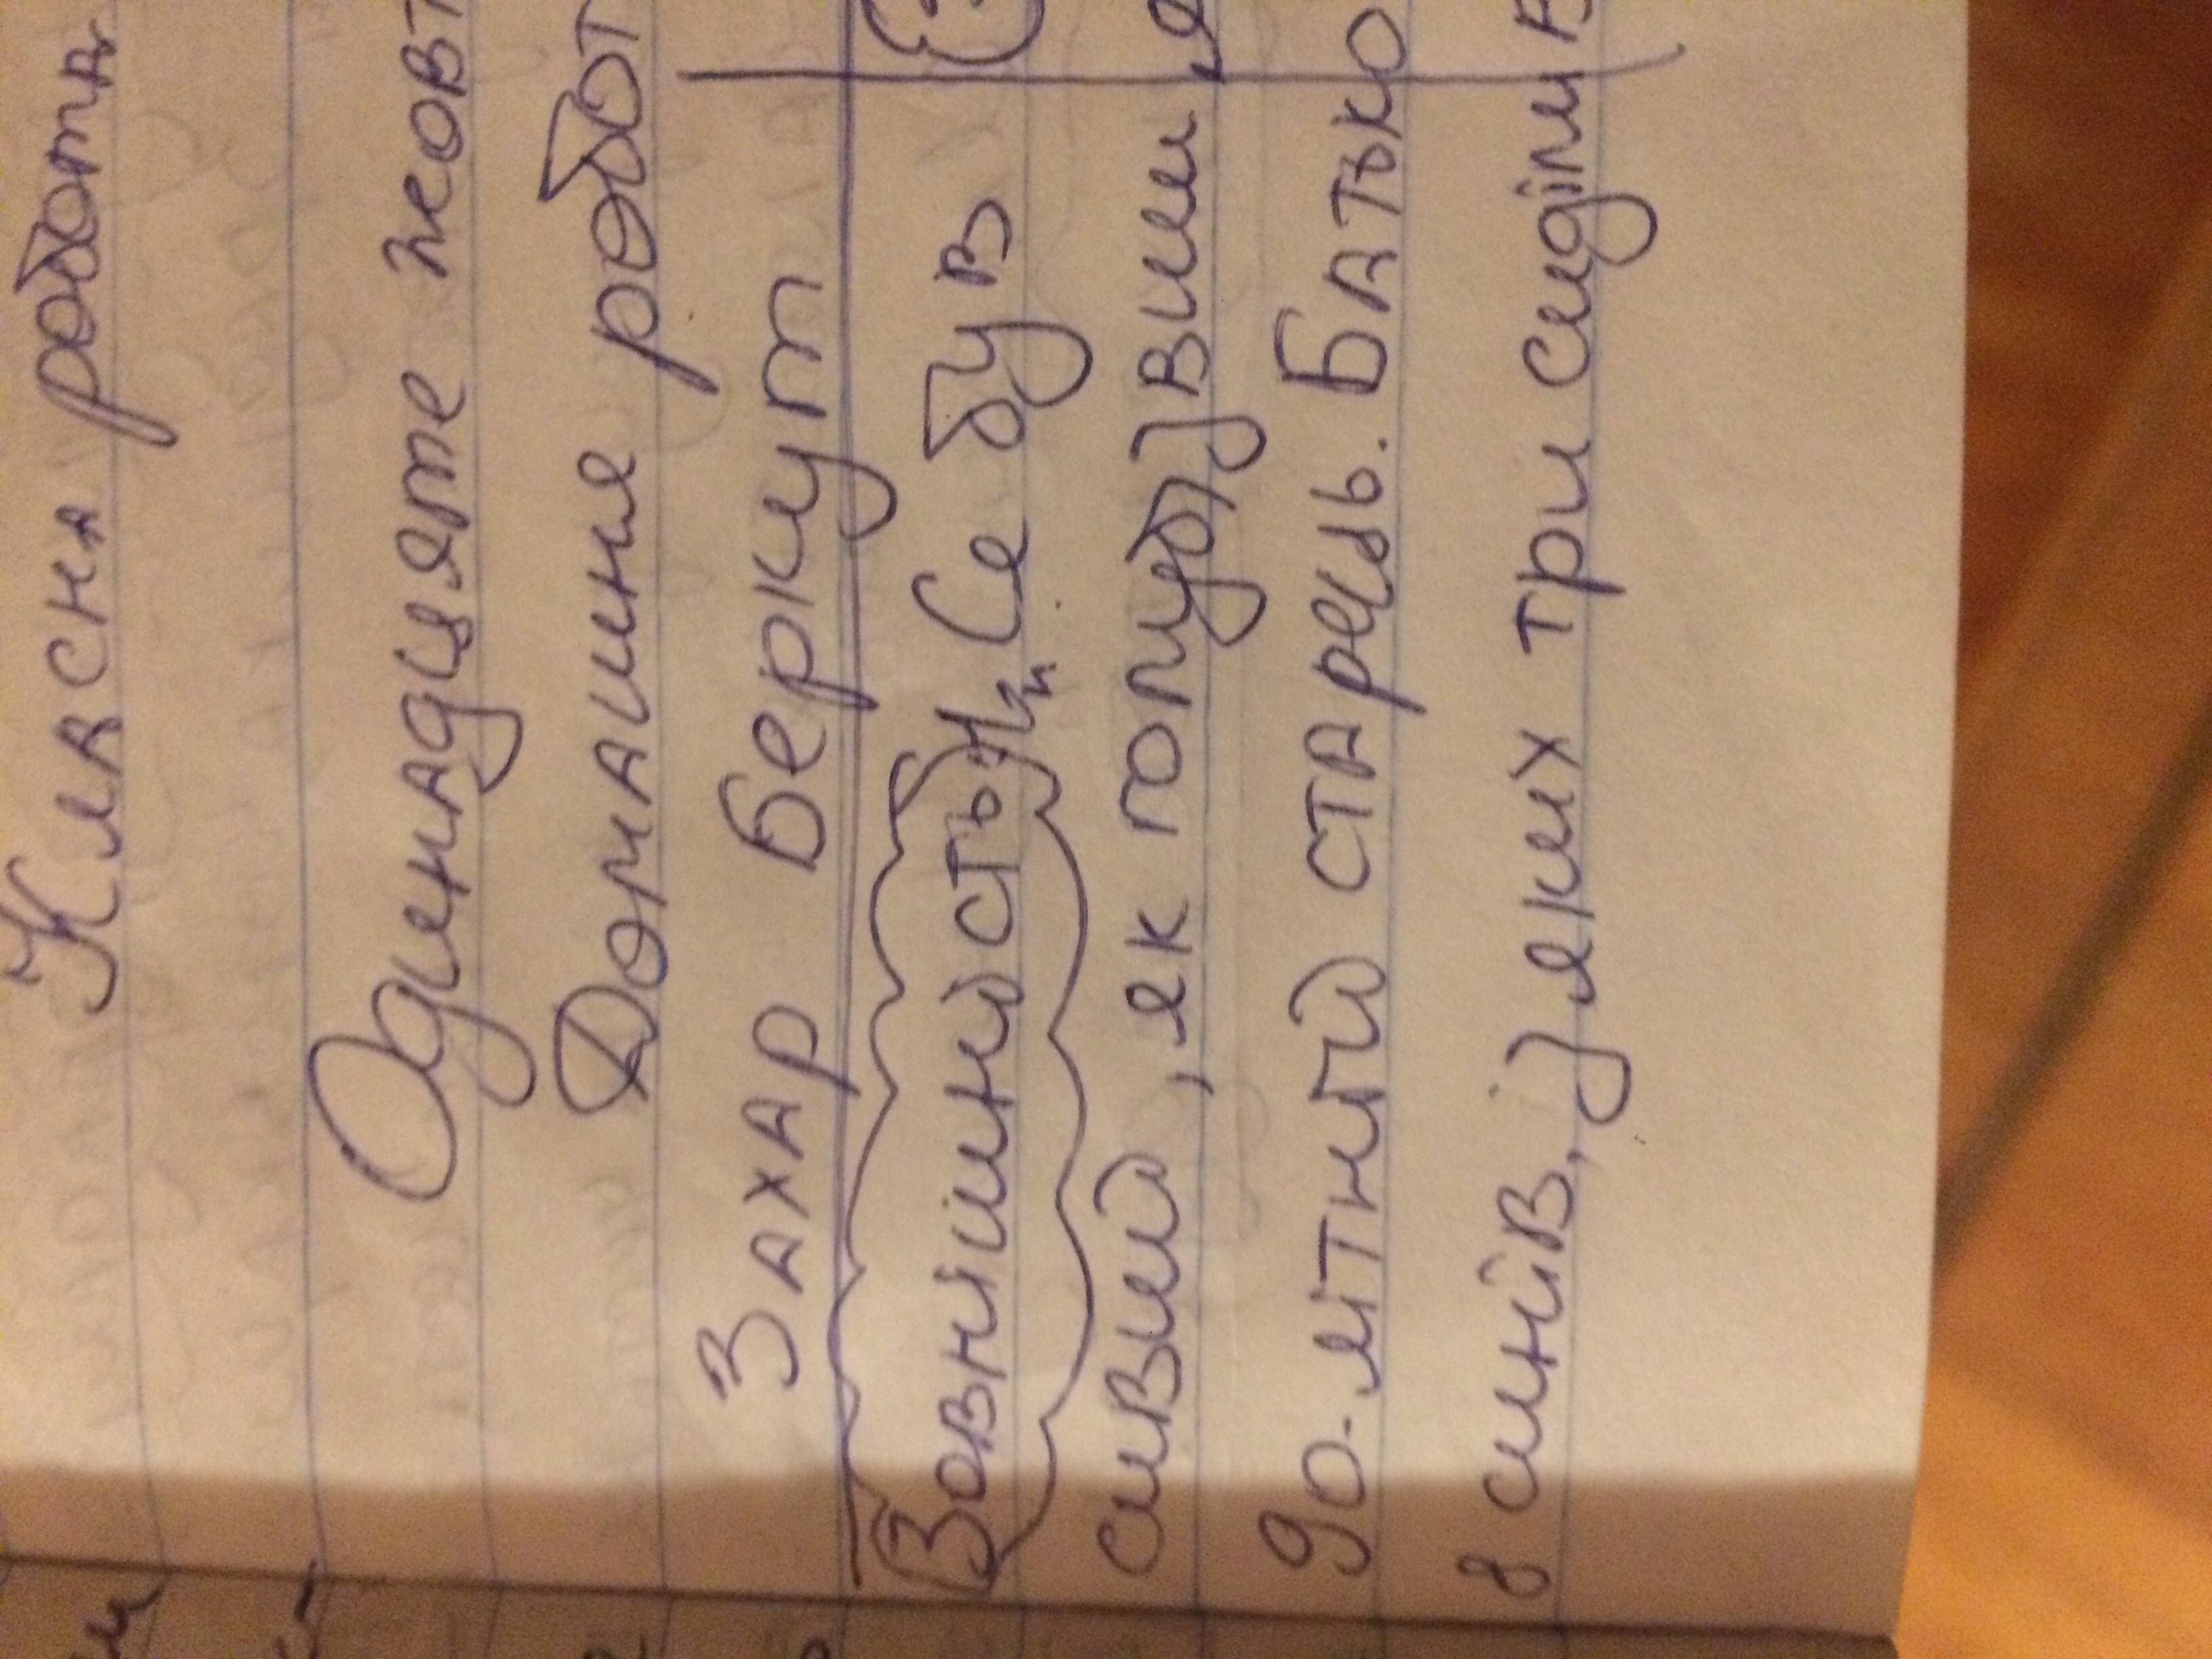 Класна робота
Одинадцяте жовт
Домашня робот
Захар Беркут
Зовнішність Се був
сивий, як голуб, звиш
90-літній старець. Батько
8 синів, з яких три сиділи